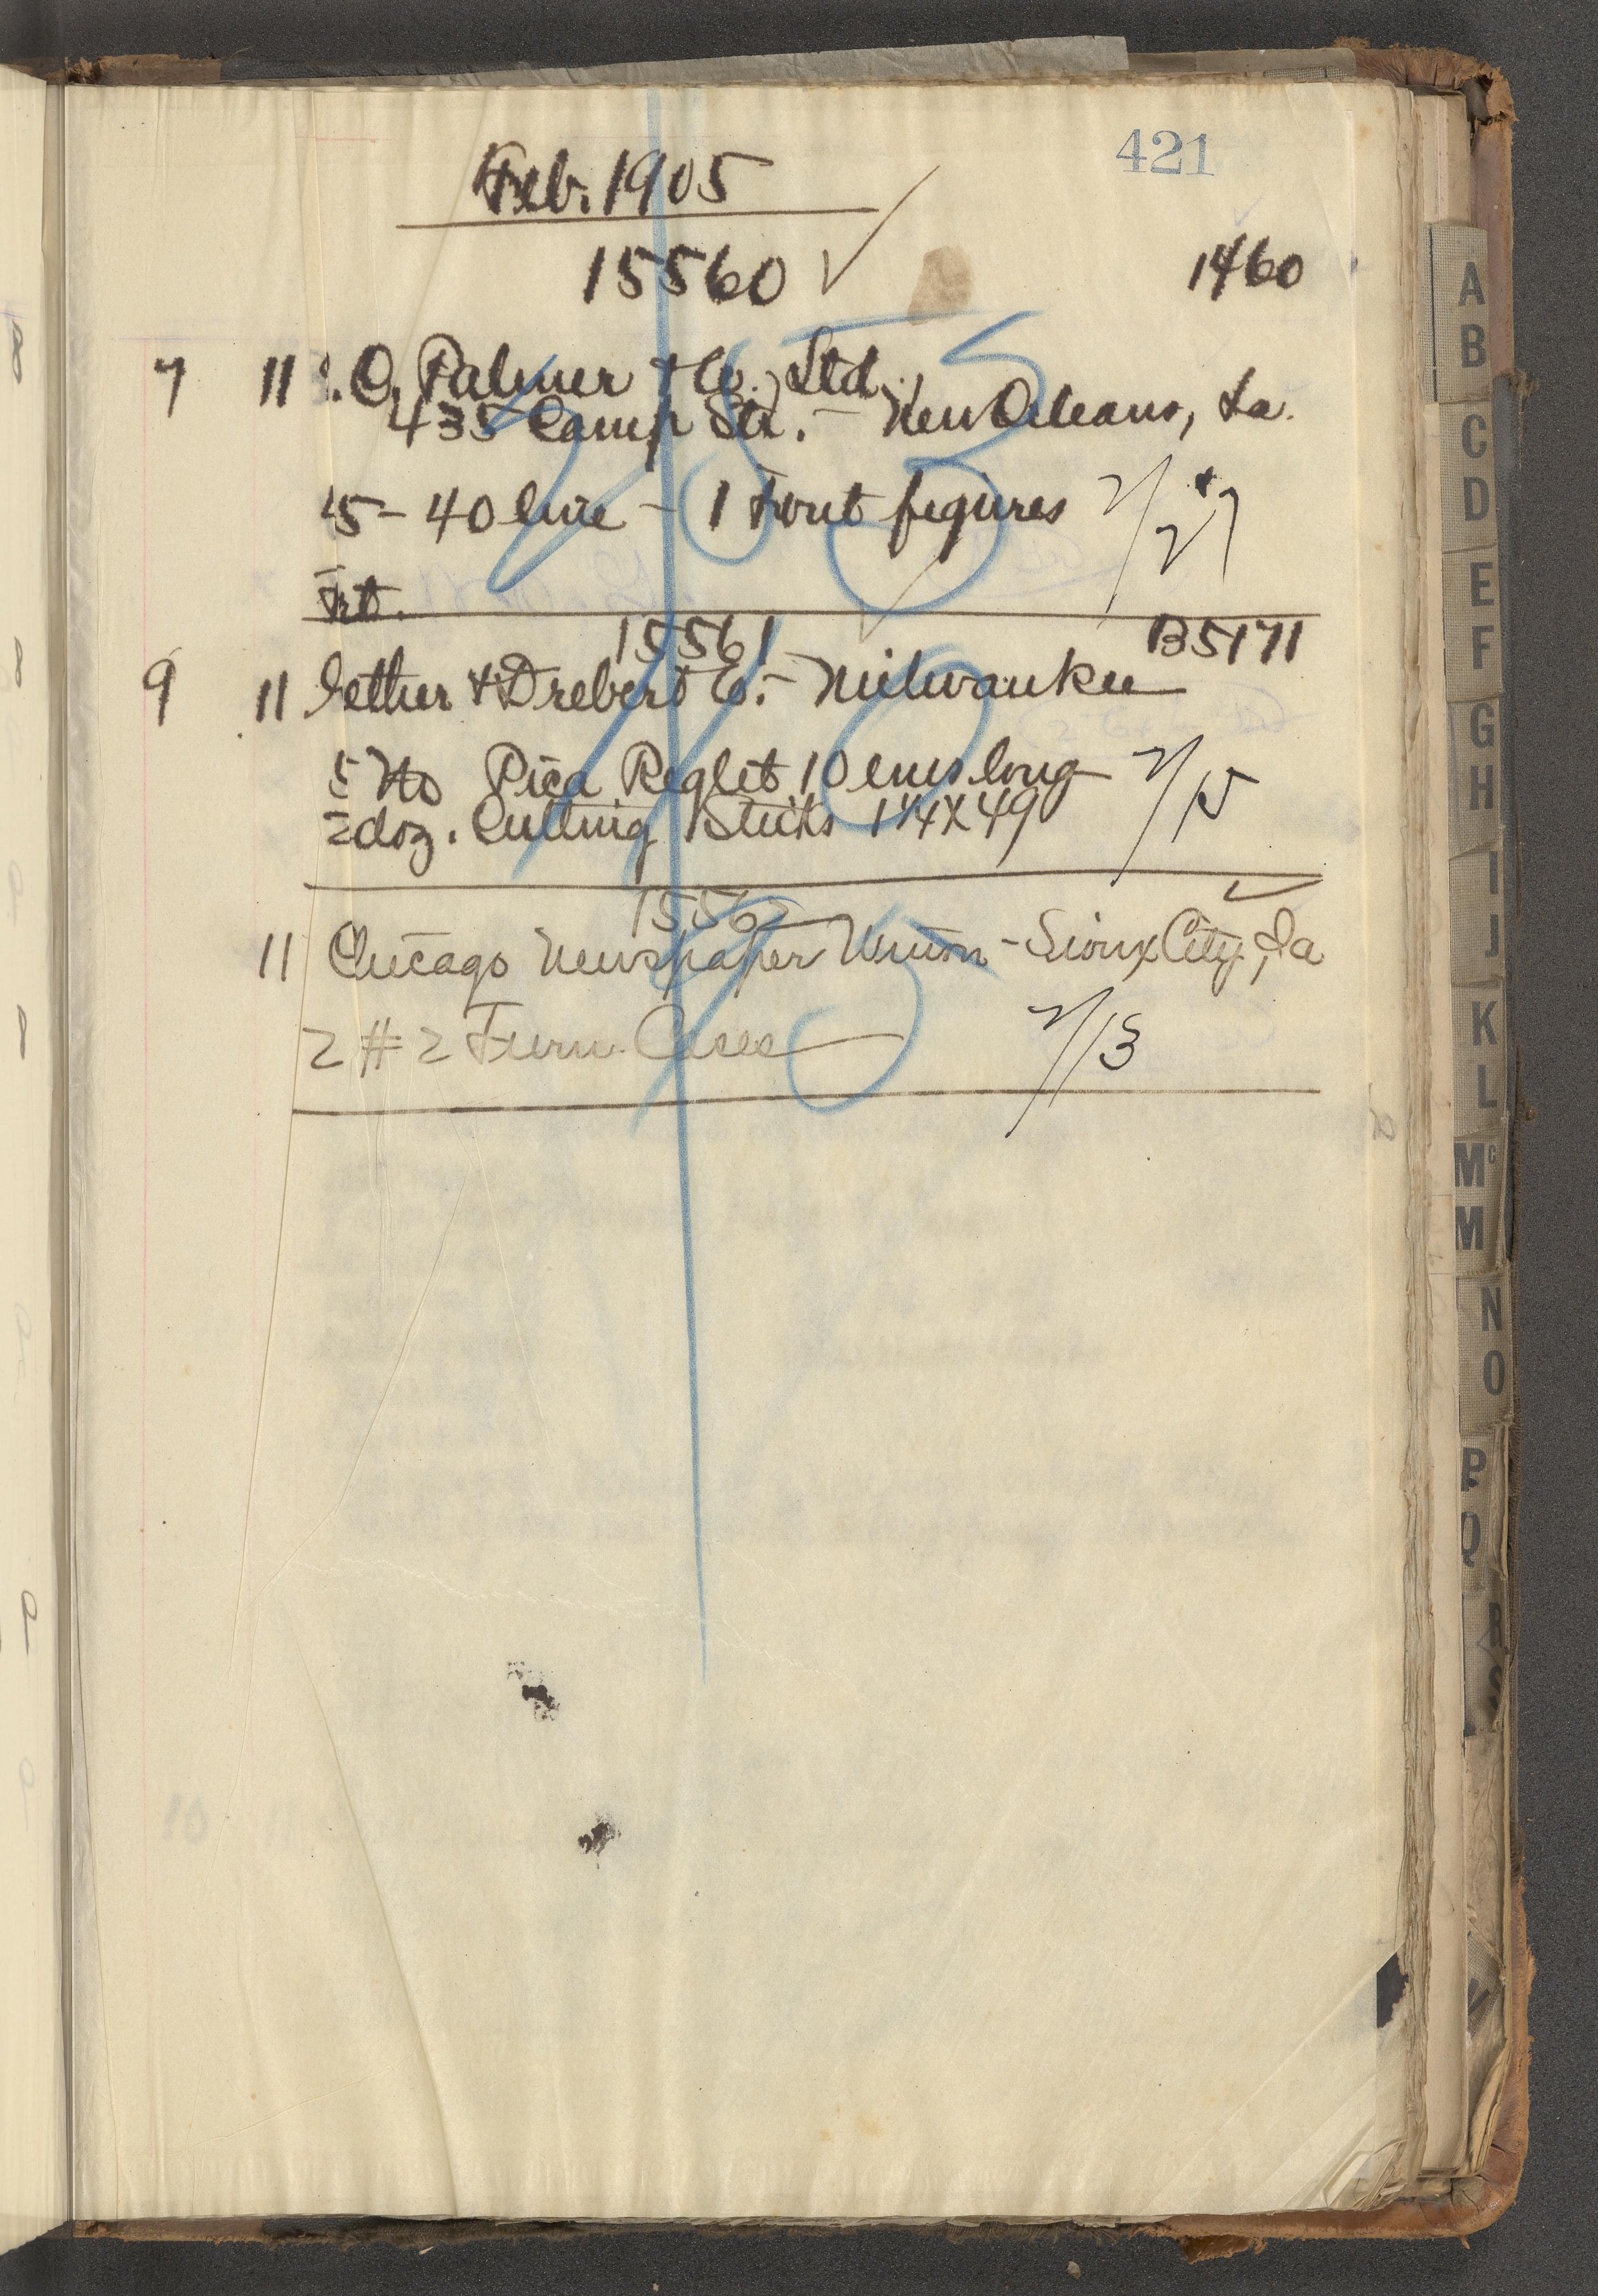 421
Feb. 1905
15560 ✓ 1460
7 11 . O. Palmer & Co., Ltd.
435 Camp Str. - New Orleans, La.
15 - 40 line - 1 Font figures 2/27
Frt.
15561 B5171
9 11 Gether & Drebert Co. - Milwaukee
5 No Pica Reglet 10 ems long 2/15
2 doz. Cutting Sticks 1 1/4 X 49
15562 ✓
11 Chicago Newspaper Union - Sioux City, Ia
2 # 2 Furn. Cases 2/13
A
B
C
D
E
F
G
H
I
J
K
L
Mc
M
N
O
P
Q
R
S